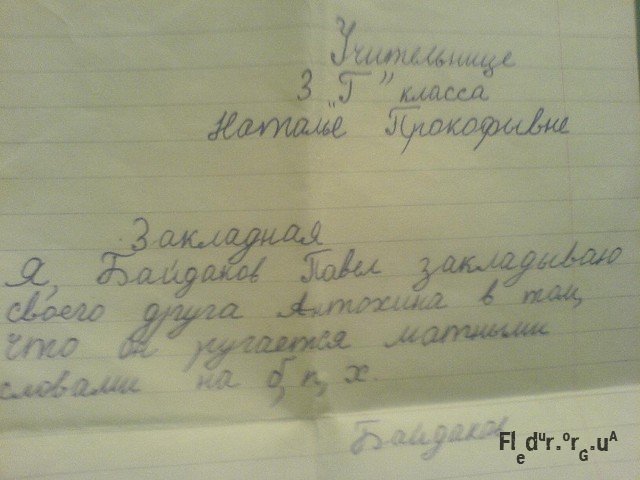 Учительнице
3 "Г" класса
Наталье Прокофьвне
Закладная
Я, Байдаков Павел закладываю
своего друга Антохина в том,
что он ругается матными
словами на б, п, х.
Байдаков
Fledur.orG.uA